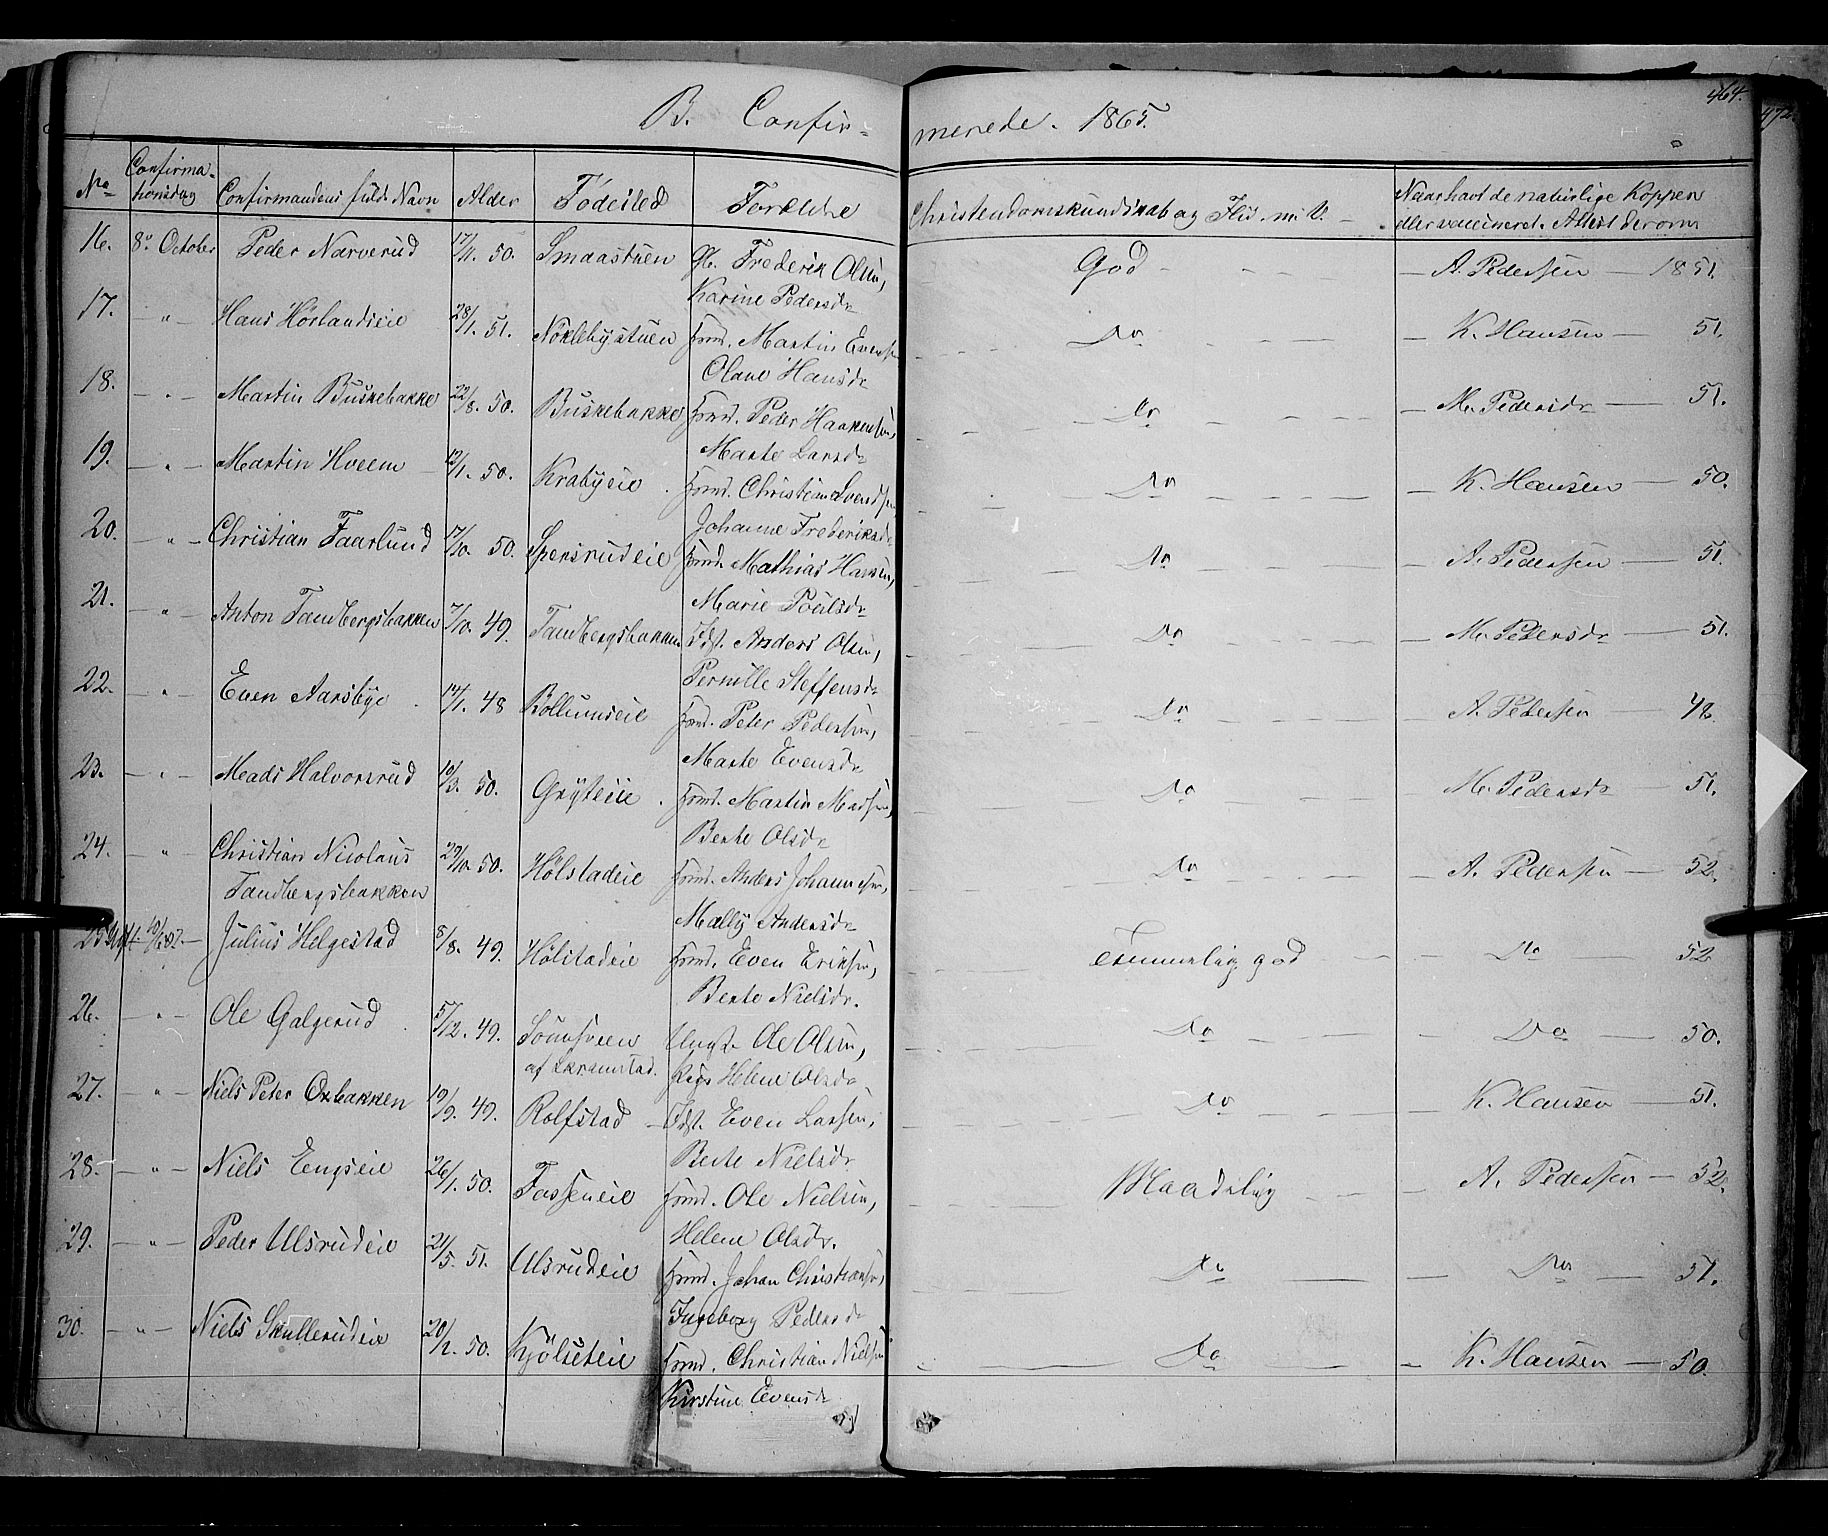 464.
472.
B. Confir-
merede. 1865.
No Confirmationsdag Confirmandens fulde Navn Alder Födested Forældre Christendomskundskab og Flid. m. V. Naar havt de naturlige Kopper
eller vaccineret. Attest derom
16. 8de October Peder Narverud 17/11. 50. Smaastuen Frederik Olsen, God A. Pedersen 1851.
Karine Pedersdr
17. " Hans Hörlandseie 28/1. 51. Nöklebystuen Hmd. Martin Evens. Do K. Hansen 51.
Olane Hansdr
18. " Martin Buskebakke 22/8. 50. Buskebakke Hmd. Peder Haakensen, Do M. Pedersdr 51.
Marte Larsdr
19. " Martin Hveem 12/1. 50. Krabyeie Hmd. Christian Svendsen Do K. Hansen 50.
Johanne Frederiksdr
20. " Christian Faarlund 17/10. 50. Spersrudeie Hmd. Mathias Hansen, Do A. Pedersen 51.
Marie Poulsdr
21. " Anton Tandbergsbakken 7/10. 49. Tandbergsbakken Anders Olsen, Do M. Pedersdr 51.
Pernille Steffensdr
22. " Even Aarsbye 14/1. 48 Bollumseie Hmd. Peter Pedersen, Do A. Pedersen 48.
Marte Evensdr
23. " Mads Halvorsrud 10/3. 50. Gryteeie Hmd. Martin Madsen, Do M. Pedersdr 51.
Berte Olsdr
24. " Christian Nicolaus 29/10. 50. Hölstadeie Hmd. Anders Johannesen, Do A. Pedersen 52.
Tandbergsbakken
Mally Andersdr
25 Julius Helgestad 8/8. 49. Hölstadeie Hmd. Even Eriksen, Temmelig god Do 52
Berte Nielsdr.
26. " Ole Galgerud 5/12. 49. Ole Olsen, Do Do 50.
af Skramstad. Pige Helene Olsdr
27. " Niels Peter Oxbakken 19/9. 49. Rolfstad Even Larsen, Do K. Hansen 51.
Berte Nielsdr
28. " Niels Eengseie 26/1. 50. Fosseneie Hmd. Ole Nielsen, Maadelig A. Pedersen 52.
Helene Olsdr.
29. " Peder Ulsrudeie 21/5. 51. Ulsrudeie Hmd. Johan Christiansen, Do Do 51.
Ingeborg Pedersdr
30. " Niels Skullerudeie 20/2. 50. Kjölseteie Hmd. Christian Nielsen Do K. Hansen 50.
Kirstine Evensdr